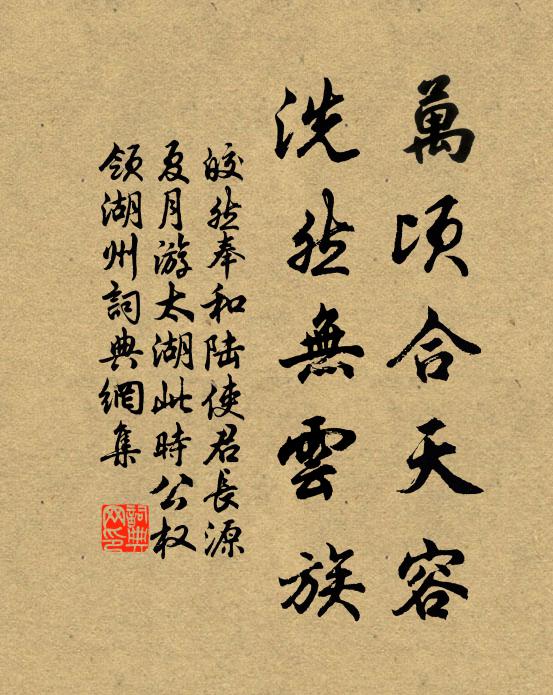 萬頃合天容
洗然無雲族
皎然奉和陆使君長源
夏月游太湖此時公权
領湖州詞典網集
詞典网印